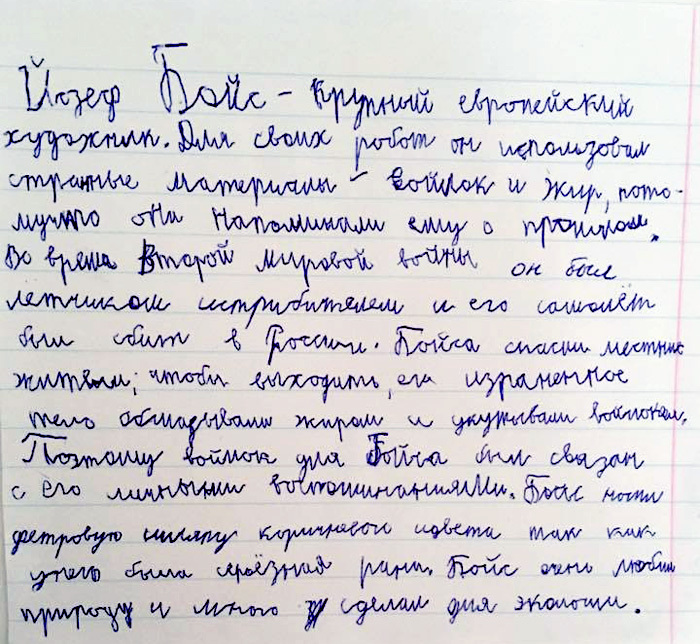 Йозеф Бойс – крупный европейский
художник. Для своих робот он использовал
странные материалы – войлок и жир, пото-
мучто они напоминали ему о прошлом.
Во время Второй мировой войны он был
летчиком истрибителем и его самолёт
был сбит в России. Бойса спасли местние
жители; чтобы выходить, его израненное
тело обкладывали жиром и укутывали войлоком.
Поэтому войлок для Бойса был связан
с его личными воспоминаниями. Бойс носил
фетровую шляпу коричневого цвета так как
унего была серьёзная рана. Бойс очень любил
природу и много сделал для экологии.